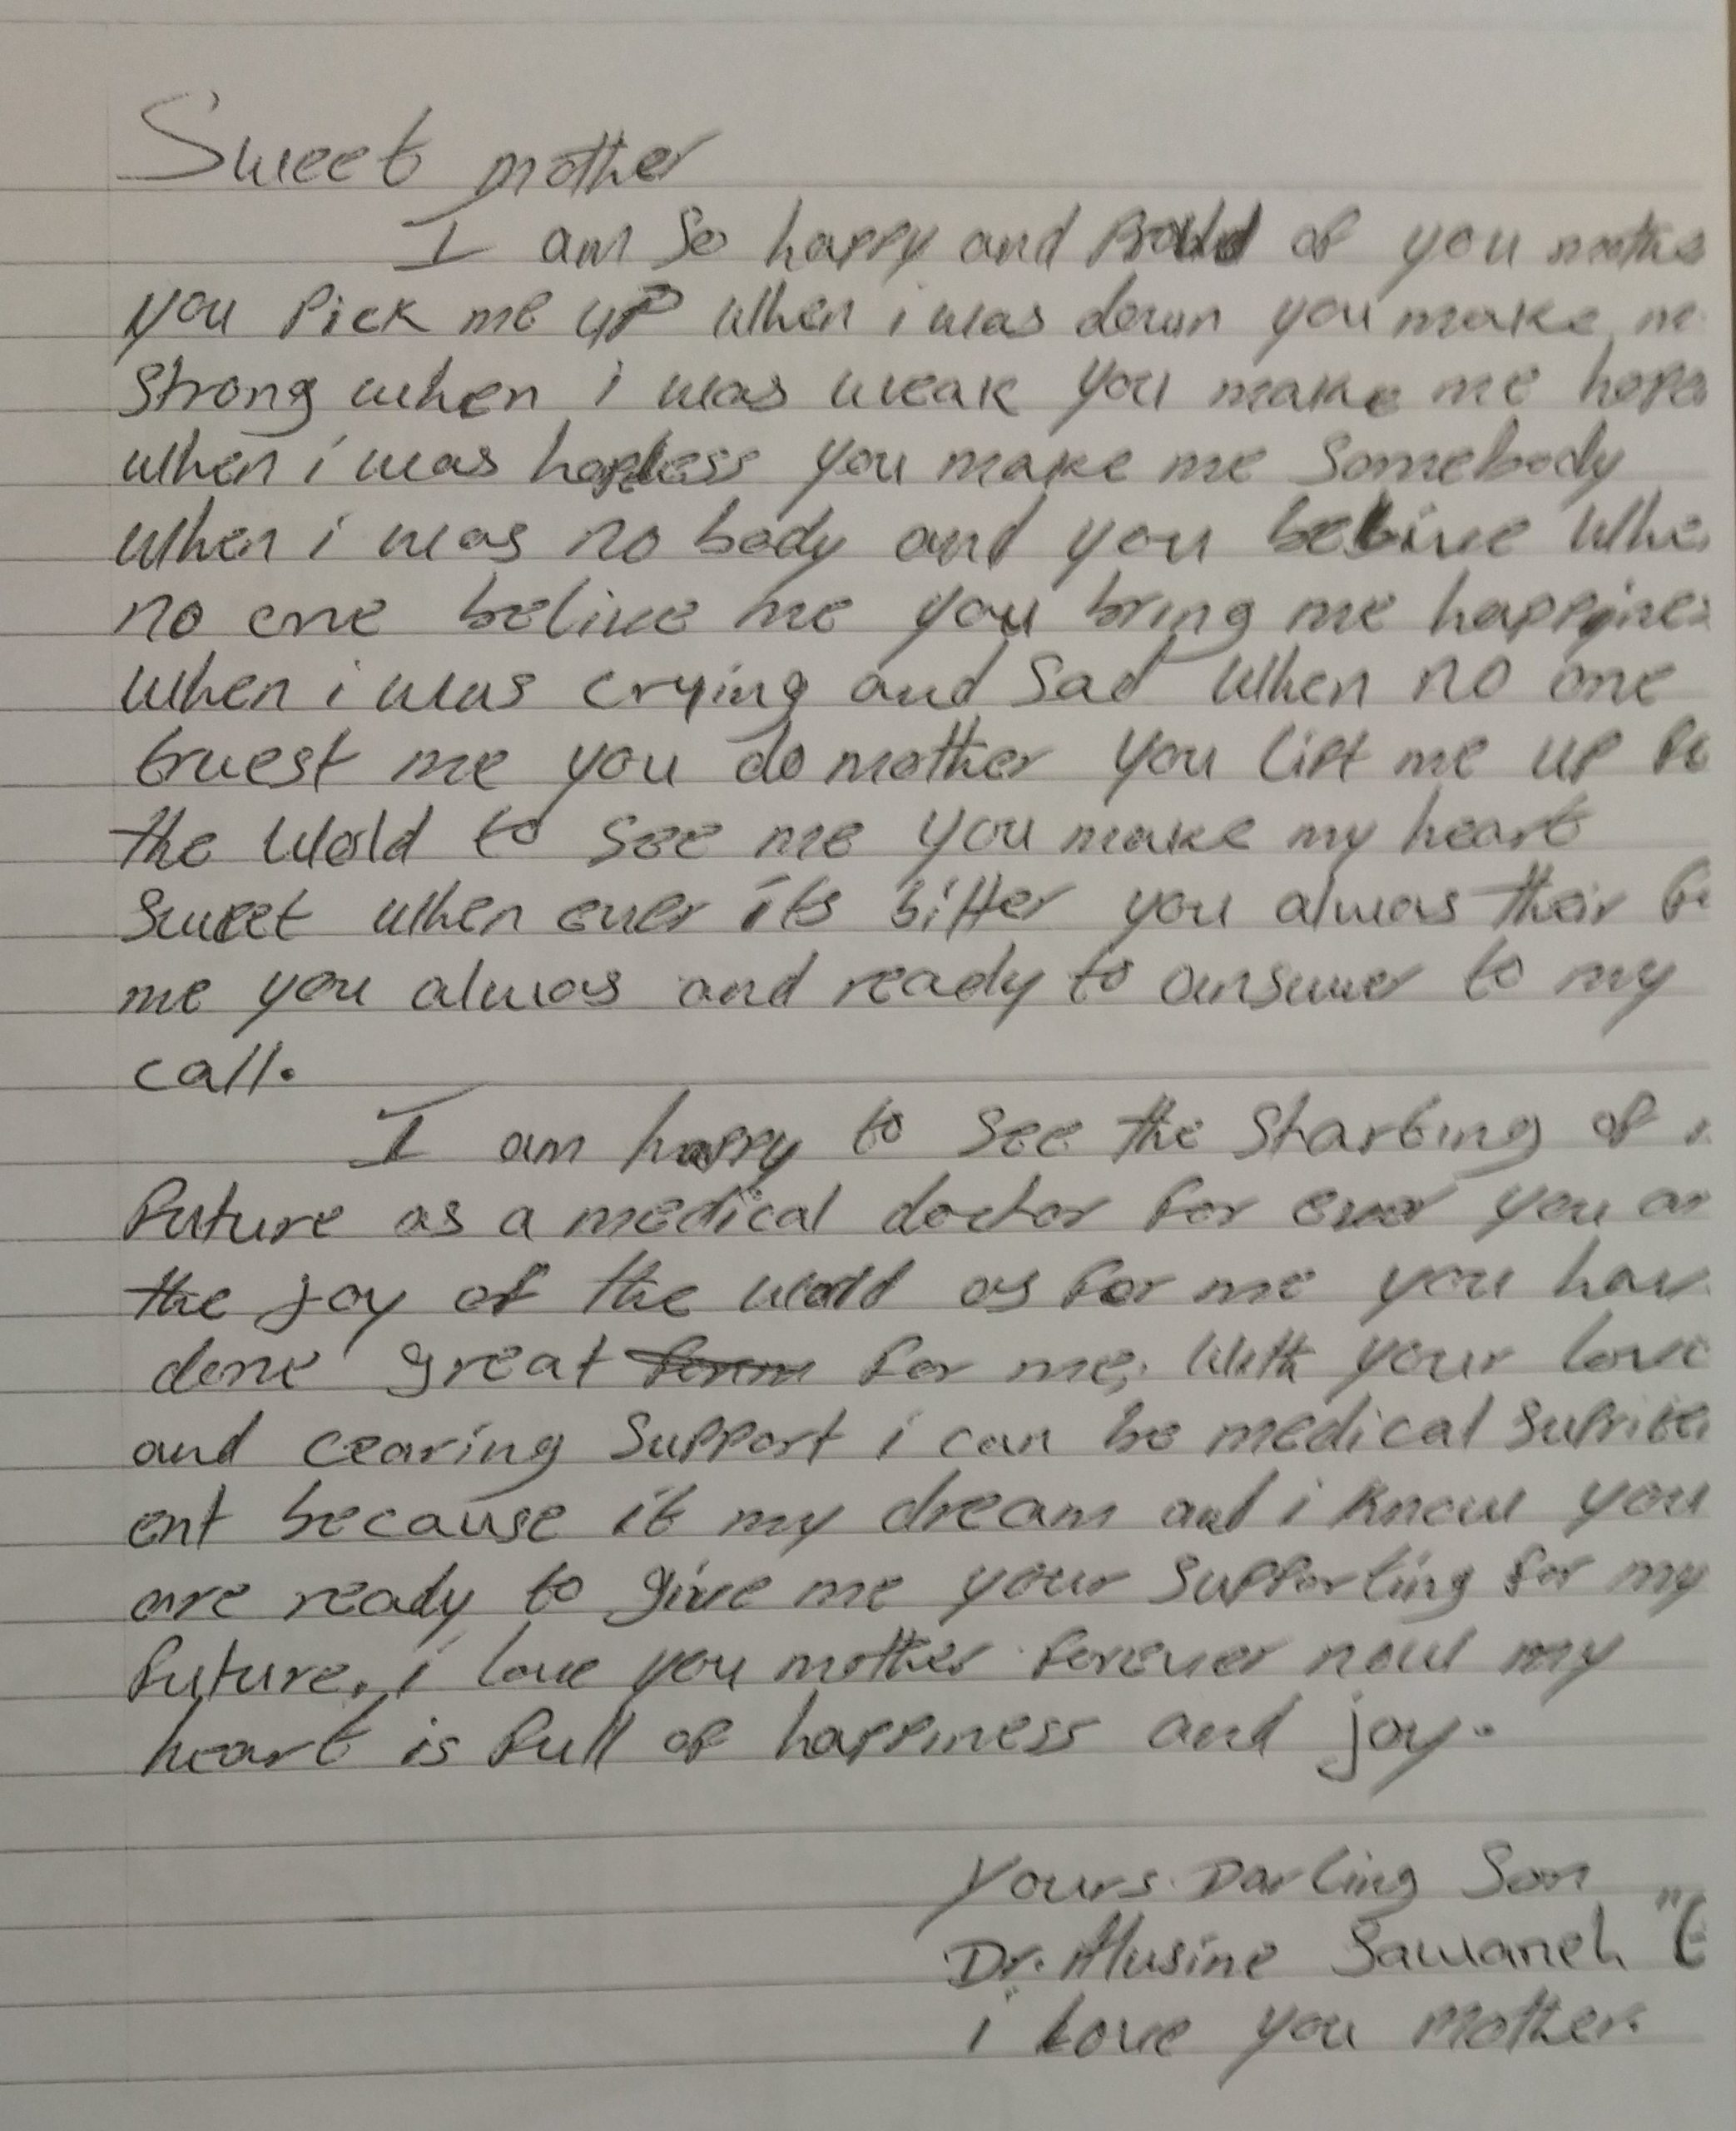 Sweet mother
I am so happy and Proud of you
you Pick me up when i was down you make
strong when i was weak you make me
when i was hopeless you make me Somebody
when i was no body and you belive
no one belive me you bring me
when i was crying and sad when no one
truest me you do mother you lift me up
the World to see me you make my heart
sweet when ever its bitter you alwas their
me you alwas and ready to answer to my
call.
I am happy to see the starting of
future as a medical doctor for ever you
the joy of the world as for me you
done great for me, with your love
and cearing support i can be medical
ent because it my dream and i know you
are ready to give me your supporting for my
future. i love you mother forever now my
heart is full of happiness and joy.
Yours Darling Son
Dr. Alusine Sawaneh
i Love you Mother.